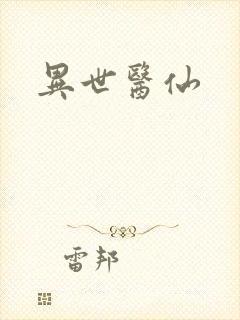 異世醫仙
雷邦